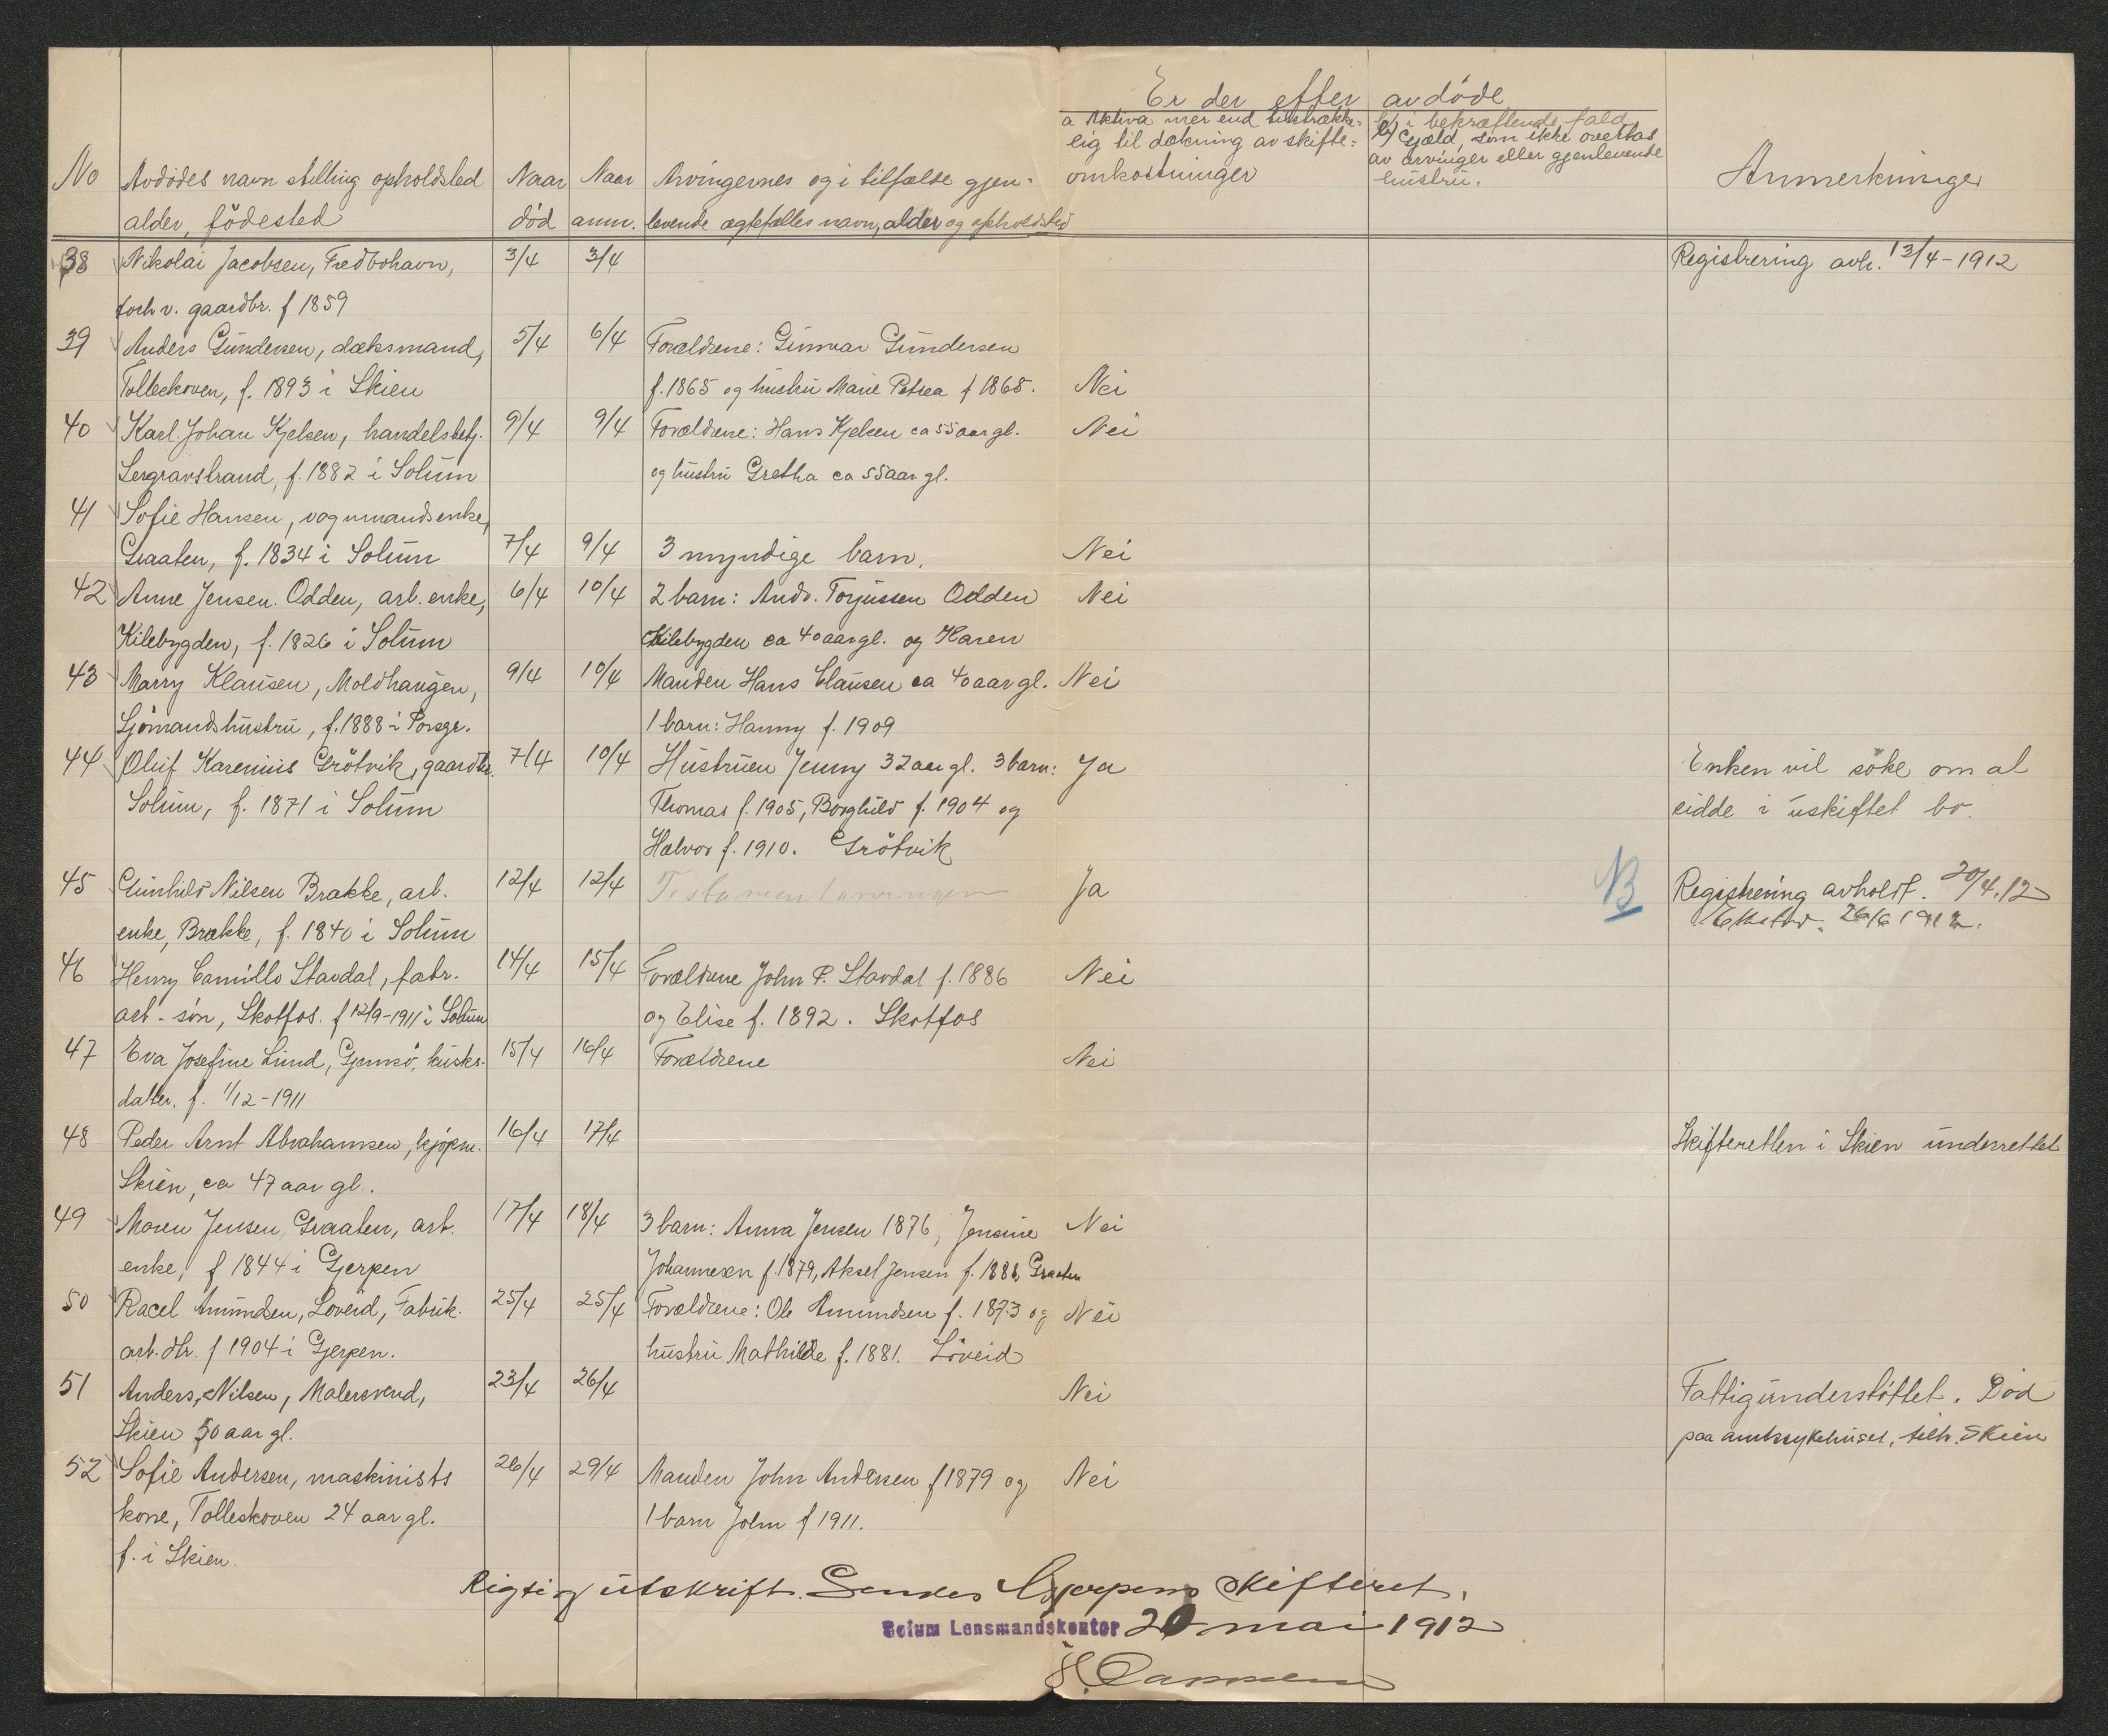 Er der efter avdöde
a Aktiva mer end tilstrække=
lig til dækning av skifte=
omkostninger
b) i bekræftende fald
Gjæld, som ikke overtas
av arvinger eller gjenlevende
hustru.
No Avdödes navn stilling opholdsted Naar Naar Arvingernes og i tilfælde gjen- Anmerkninger
alder, födested död anm. levende ægtefælles navn, alder og opholdsted
38 Nikolai Jacobsen, Fredbohavn, 3/4 3/4 Registrering avh. 13/4-1912
forhv. gaardbr. f 1859
39 Anders Gundersen, dæksmand, 5/4 6/4 Forældrene: Gunvar Gundersen
Tolleskoven, f. 1893 i Skien f. 1865 og hustru Marie Petrea f 1865. Nei
40 Karl Johan Kjelsen, handelsbetj. 9/4 9/4 Forældrene: Hans Kjelsen ca 55 aar gl. Nei
f. 1882 i Solum og hustru Gretha ca 55 aar gl.
41 Sofie Hansen, vognmandsenke,
Graaten, f. 1834 i Solum 7/4 9/4 3 myndige barn. Nei
42 Anne Jensen Odden, arb. enke, 6/4 10/4 2 barn: Andr. Torjussen Odden Nei
Kilebygden, f. 1826 i Solum Kilebygden ca 40 aar gl. og Karen
43 Marry Klausen, Moldhaugen, 9/4 10/4 Manden Hans Clausen ca 40 aar gl. Nei
Sjömandshustru, f. 1888 i Porsgr. 1 barn: Hanny f. 1909
44 Oluf Karenius Grötvik, gaardbr. 7/4 10/4 Hustruen Jenny 32 aar gl. 3 barn: Ja Enken vil söke om at
Solum, f. 1871 i Solum Thomas f. 1905, Borghild f. 1904 og sidde i uskiftet bo.
Halvor f. 1910. Grötvik
45 Gunhild Nilsen Brække, arb. 12/4 12/4 Testamentarvinger Ja NB Registrering avholdt. 20/4.12
enke, Brække, f. 1840 i Solum 26/6 1912.
46 Henry Camillo Stavdal, fabr. 14/4 15/4 Forældrene John P. Stavdal f. 1886 Nei
arb. sön, Skotfos. f 12/9-1911 i Solum og Elise f. 1892. Skotfos
47 Eva Josefine Lund, Gjemsö, kusks- 15/4 16/4 Forældrene Nei
datter. f. 1/12-1911
48 Peder Arnt Abrahamsen, kjöpm. 16/4 17/4 Skifteretten i Skien underrettet
Skien, ca 47 aar gl.
49 Maren Jensen Graaten, arb. 17/4 18/4 3 barn: Anna Jensen 1876, Jensine Nei
enke, f 1844 i Gjerpen Johannesen f. 1879, Aksel Jensen f. 1888, Graaten
50 Racel Amundsen, Löveid, Fabrik. 25/4 25/4 Forældrene: Ole Amundsen f. 1873 og Nei
arb. dtr. f 1904 i Gjerpen. hustru Mathilde f. 1881. Löveid
51 Anders, Nilsen, Malersvend, 23/4 26/4 Nei Fattigunderstöttet. Död
Skien 50 aar gl. paa amtssykehuset, tilh. Skien
52 Sofie Andersen, maskinists 26/4 29/4 Manden John Andersen f 1879 og Nei
kone, Tolleskoven 24 aar gl. 1 barn John f 1911.
f. i Skien.
Rigtig utskrift. Sendes Gjerpens skifteret.
Solum Lensmandskontor 20 mai 1912